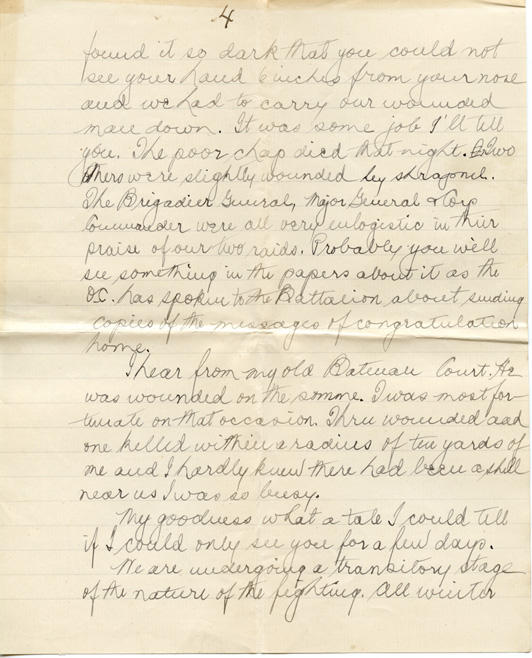 4
found it so dark that you could not
see your hand 6 inches from your nose
and we had to carry our wounded
man down. It was some job I'll tell
you. The poor chap died that night. Two
others were slightly wounded by shrapnel.
The Brigadier General, Major General & Corp
Commander were all very eulogistic in their
praise of our two raids. Probably you will
see something in the papers about it as the
O.C. has spoken to the Battalion about sending
copies of the messages of congratulation
home.
I hear from my old Batman Court. He
was wounded on the somme. I was most for-
tunate on that occasion. Three wounded and
one killed within a radius of ten yards of
me and I hardly knew there had been a shell
near us I was so busy.
My goodness what a tale I could tell
if I could only see you for a few days.
We are undergoing a transitory stage
of the nature of the fighting. All winter